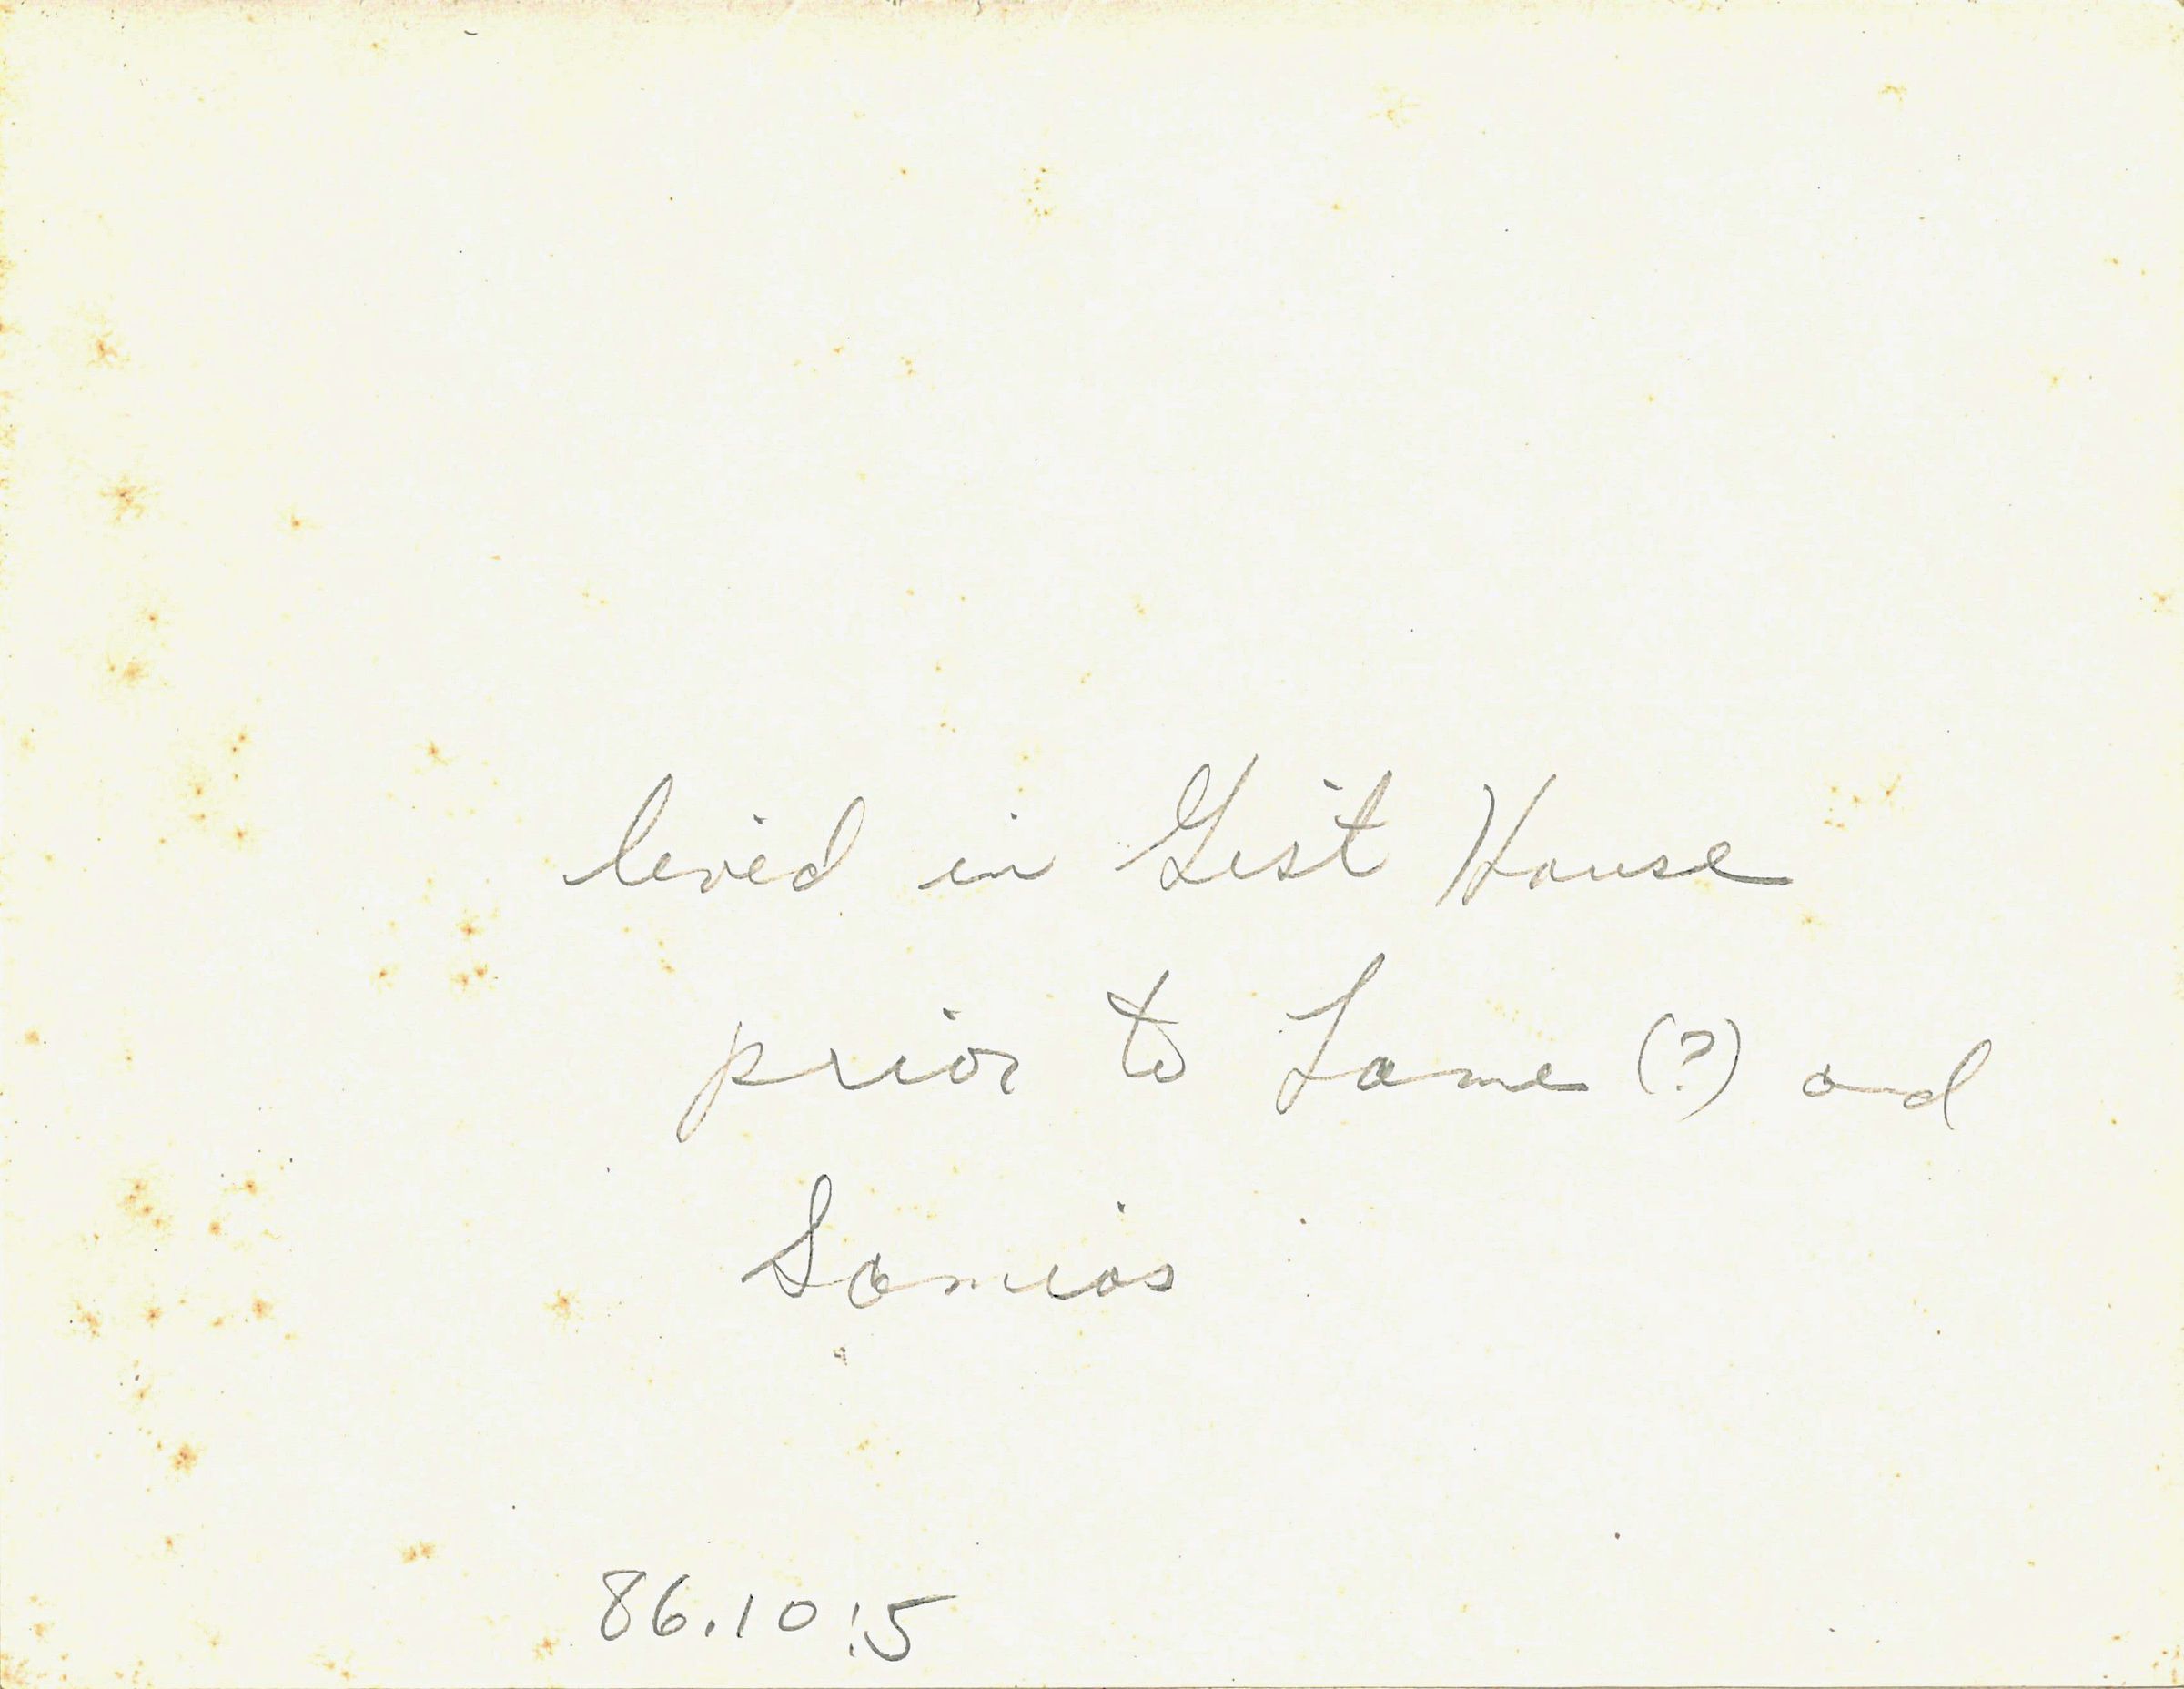 lived in Gist House
prior to Lame (?) and
Samios
86.10:5